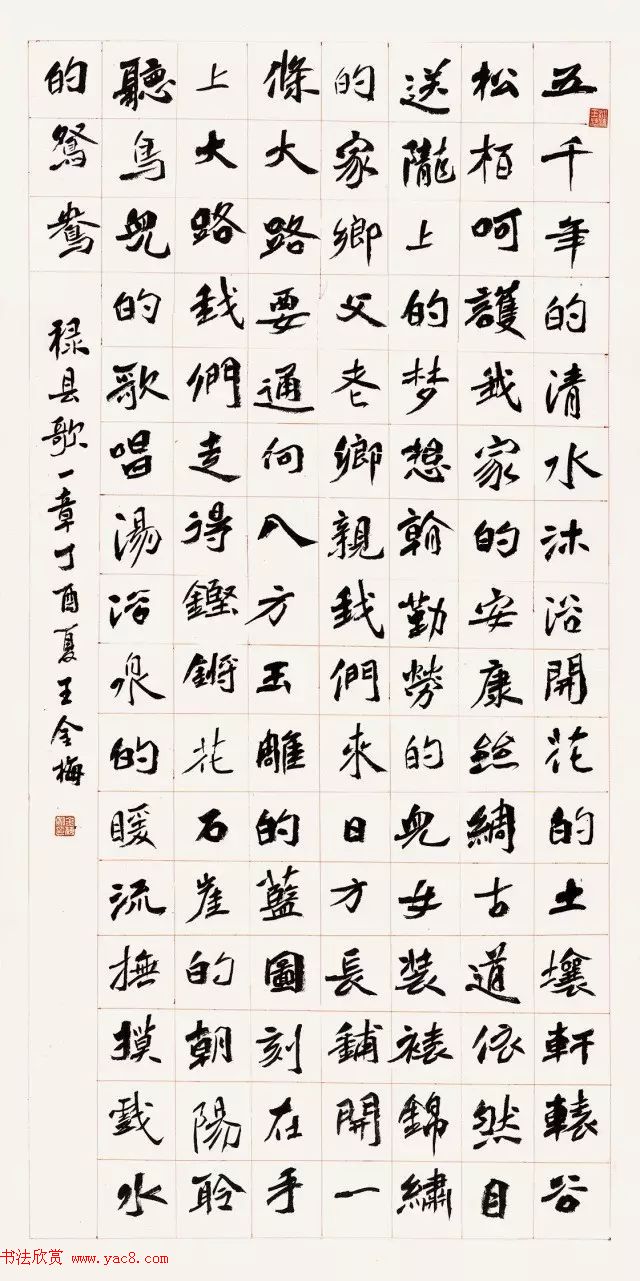 五千年的清水沐浴開花的土壤軒轅谷
松栢呵護我家的安康絲綢古道依然目
送隴上的梦想翰勤勞的兒女装裱錦繡
的家鄉父老鄉親我們來日方長鋪開一
條大路要通向八方玉雕的藍圖刻在手
上大路我們走得鏗鏘花石崖的朝陽聆
聽鳥兒的歌唱湯浴泉的暖流撫摸戲水
的鴛鴦
县歌一章丁酉夏王金梅
书法欣赏 www.yac8.com